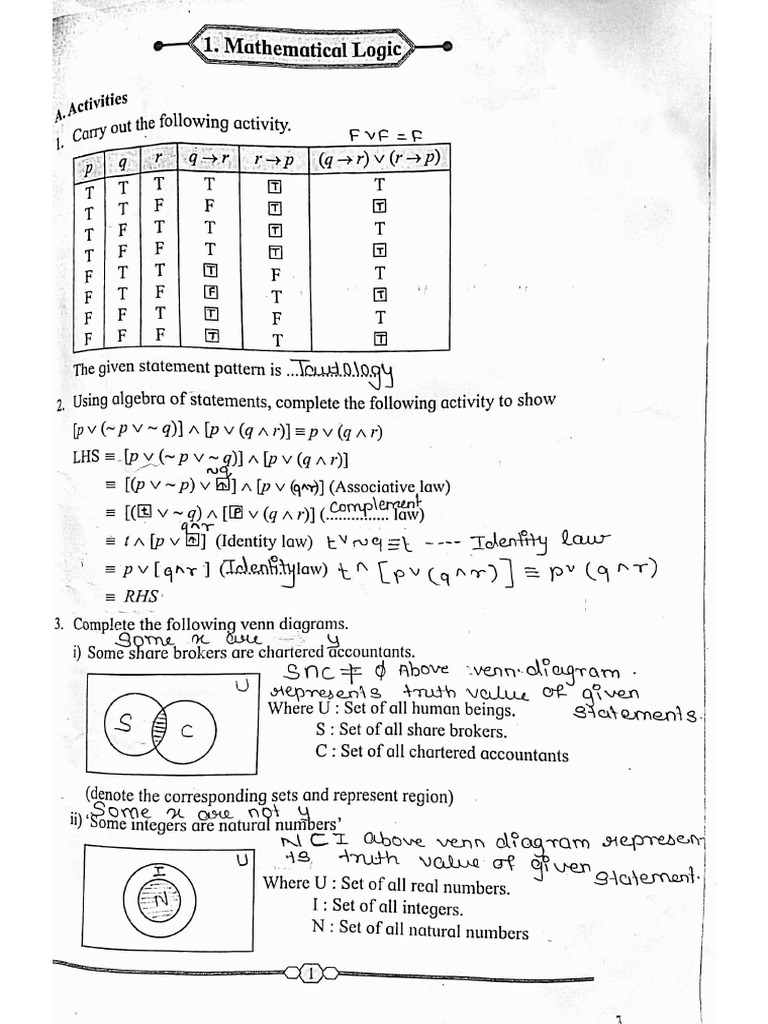 1. Mathematical Logic
A. Activities
1. Carry out the following activity.
F∨F = F
p q r q → r r → p (q → r) ∨ (r → p)
T T T T T T
T T F F T T
T F T T T T
T F F T T T
F T T T F T
F T F F T T
F F T T F T
F F F T T T
The given statement pattern is ...Tautology
2. Using algebra of statements, complete the following activity to show
[p ∨ (~ p ∨ ~ q)] ∧ [p ∨ (q ∧ r)] ≡ p ∨ (q ∧ r)
LHS ≡ [p ∨ (~ p ∨ ~ q)] ∧ [p ∨ (q ∧ r)]
~q
≡ [(p ∨ ~ p) ∨ ] ∧ [p ∨ (q∧r)] (Associative law)
≡ [(t ∨ ~ q) ∧ [p ∨ (q ∧ r)] (Complement law)
q∧r
≡ t ∧ [p ∨ ] (Identity law) t∨~q ≡ t ---- Identity law
≡ p ∨ [q∧r] (Identity law) t ∧ [p∨(q∧r)] ≡ p∨(q∧r)
≡ RHS
3. Complete the following venn diagrams.
Some x are y
i) Some share brokers are chartered accountants.
U
S C
S∩C ≠ ϕ Above venn diagram
represents truth value of given
statements.
Where U : Set of all human beings.
S : Set of all share brokers.
C : Set of all chartered accountants
(denote the corresponding sets and represent region)
Some x are not y
ii) 'Some integers are natural numbers'
U
I
N
N⊂I above venn diagram represen
ts truth value of given
statement.
Where U : Set of all real numbers.
I : Set of all integers.
N : Set of all natural numbers
1